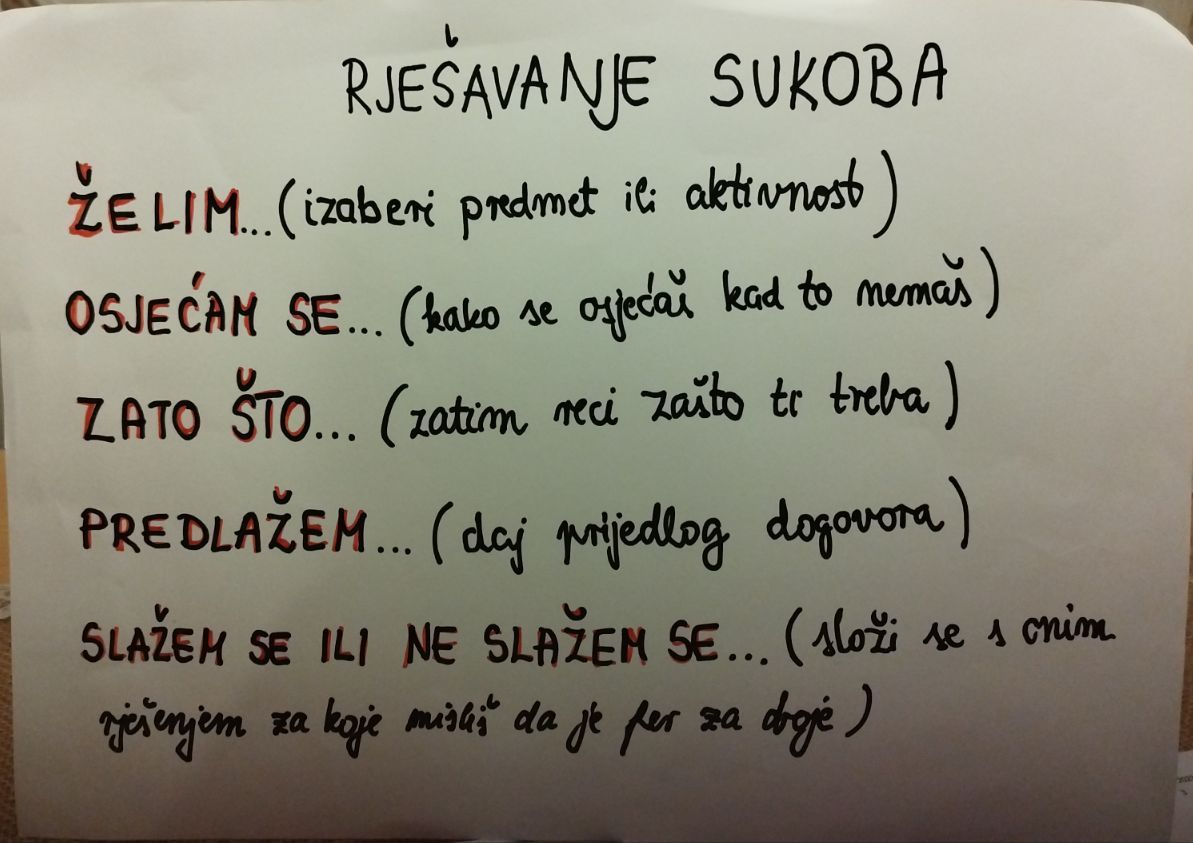 RJEŠAVANJE SUKOBA
ŽELIM...(izaberi predmet ili aktivnost)
OSJEĆAM SE...(kako se osjećaš kad to nemaš)
ZATO ŠTO...(zatim reci zašto ti treba)
PREDLAŽEM...(daj prijedlog dogovora)
SLAŽEM SE ILI NE SLAŽEM SE...(složi se s onim
rješenjem za koje misliš da je fer za dvoje)